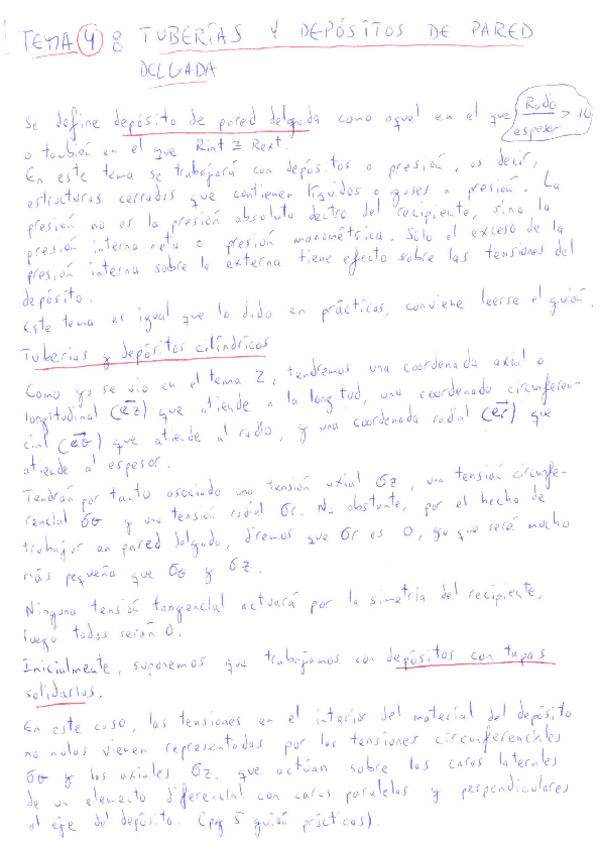 TEMA 4: TUBERÍAS Y DEPÓSITOS DE PARED
DELGADA
Se define depósito de pared delgada como aquel en el que Radio/espesor > 10
o también en el que Rint ≅ Rext.
En este tema se trabajará con depósitos a presión, es decir,
estructuras cerradas que contienen líquidos o gases a presión. La
presión no es la presión absoluta dentro del recipiente, sino la
presión interna neta o presión manométrica. Sólo el exceso de la
presión interna sobre la externa tiene efecto sobre las tensiones del
depósito.
Este tema es igual que lo dado en prácticas, conviene leerse el guión.
Tuberías y depósitos cilíndricos
Como ya se vio en el tema 2, tendremos una coordenada axial o
longitudinal (e⃗z) que atiende a la longitud, una coordenada circunferen-
cial (e⃗θ) que atiende al radio, y una coordenada radial (e⃗r) que
atiende al espesor.
Tendrán por tanto asociado una tensión axial σz, una tensión circunfe-
rencial σθ y una tensión radial σr. No obstante, por el hecho de
trabajar en pared delgada, diremos que σr es 0, ya que será mucho
más pequeña que σθ y σz.
Ninguna tensión tangencial actuará por la simetría del recipiente,
luego todas serán 0.
Inicialmente, suponemos que trabajamos con depósitos con tapas
solidarias.
En este caso, las tensiones en el interior del material del depósito
no nulas vienen representadas por las tensiones circunferenciales
σθ y las axiales σz, que actúan sobre las caras laterales
de un elemento diferencial con caras paralelas y perpendiculares
al eje del depósito. (pag 5 guión prácticas).